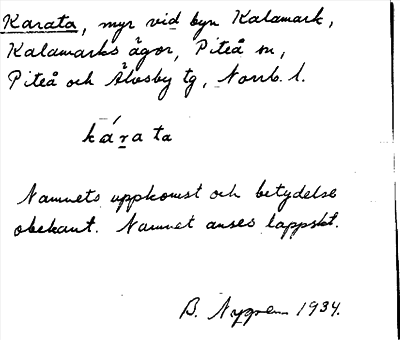 Karata, myr vid byn Kalamark,
Kalamarks ägor, Piteå sn,
Piteå och Älvsby tg, Norrb. l.
kárata
Namnets uppkomst och betydelse
obekant. Namnet anses lappskt.
B. Nygren 1934.